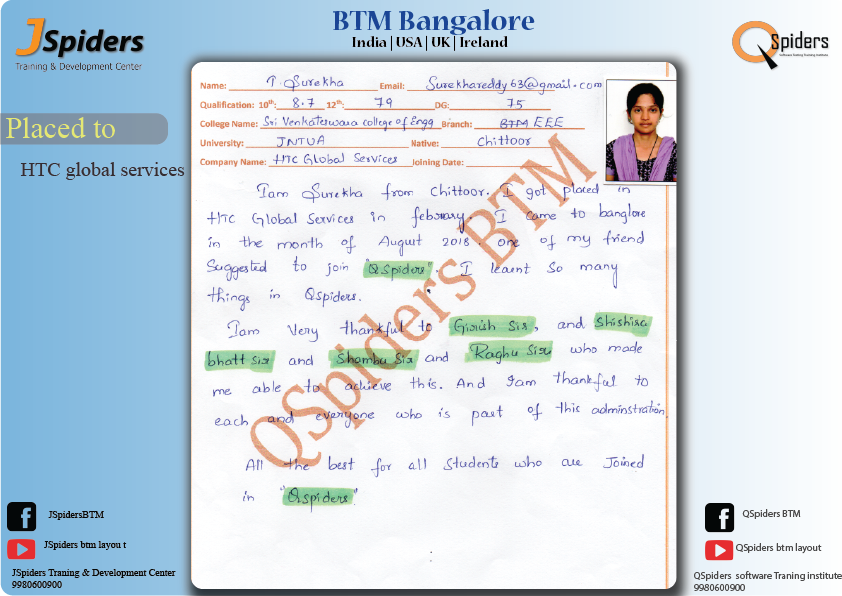 BTM Bangalore
India | USA | UK | Ireland
JSpiders
Training & Development Center
QSpiders
Software Testing Training Institute
Placed to
HTC global services
Name: T. Surekha Email: Surekhareddy63@gmail.com
Qualification: 10th: 8.7 12th: 79 DG: 75
College Name: Sri Venkateswara college of Engg Branch: BTM EEE
University: JNTUA Native: Chittoor
Company Name: HTC Global Services Joining Date:
Iam Surekha from Chittoor. I got placed in
HTC Global Services in february. I came to banglore
in the month of August 2018. one of my friend
Suggested to join "QSpiders". I learnt So many
things in Qspiders.
Iam Very thankful to Girish Sir, and Shishira
bhatt Sir and Shambu Sir and Raghu Sir who made
me able to achieve this. And Iam thankful to
each and everyone who is part of this adminstration
All the best for all Students who are Joined
in "Qspiders"
QSpiders BTM
JSpidersBTM
JSpiders btm layou t
JSpiders Traning & Development Center
9980600900
QSpiders BTM
QSpiders btm layout
QSpiders software Traning institute
9980600900